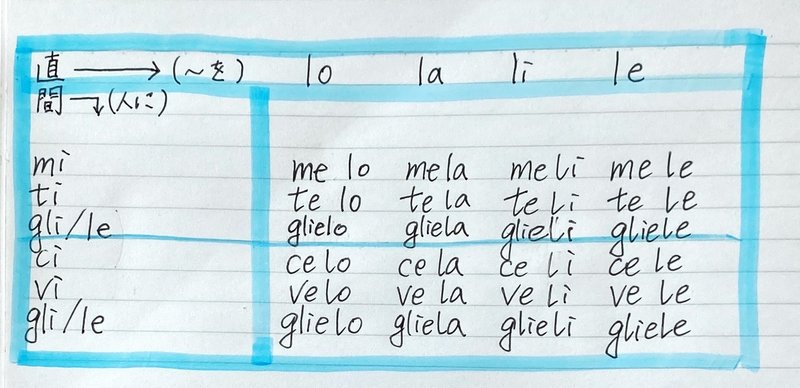 直 → (〜を) lo la li le
間 ↴(人に)
mi me lo me la me li me le
ti te lo te la te li te le
gli/le glielo gliela glieli gliele
ci ce lo ce la ce li ce le
vi ve lo ve la ve li ve le
gli/le glielo gliela glieli gliele